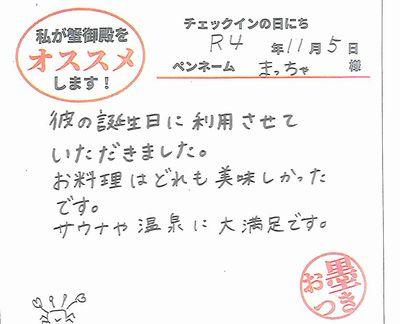 私が蟹御殿を
オススメ
します！
チェックインの日にち
R4 年 11 月 5 日
ペンネーム まっちゃ 様
彼の誕生日に利用させて
いただきました。
お料理はどれも美味しかった
です。
サウナや温泉に大満足です。
お墨つき